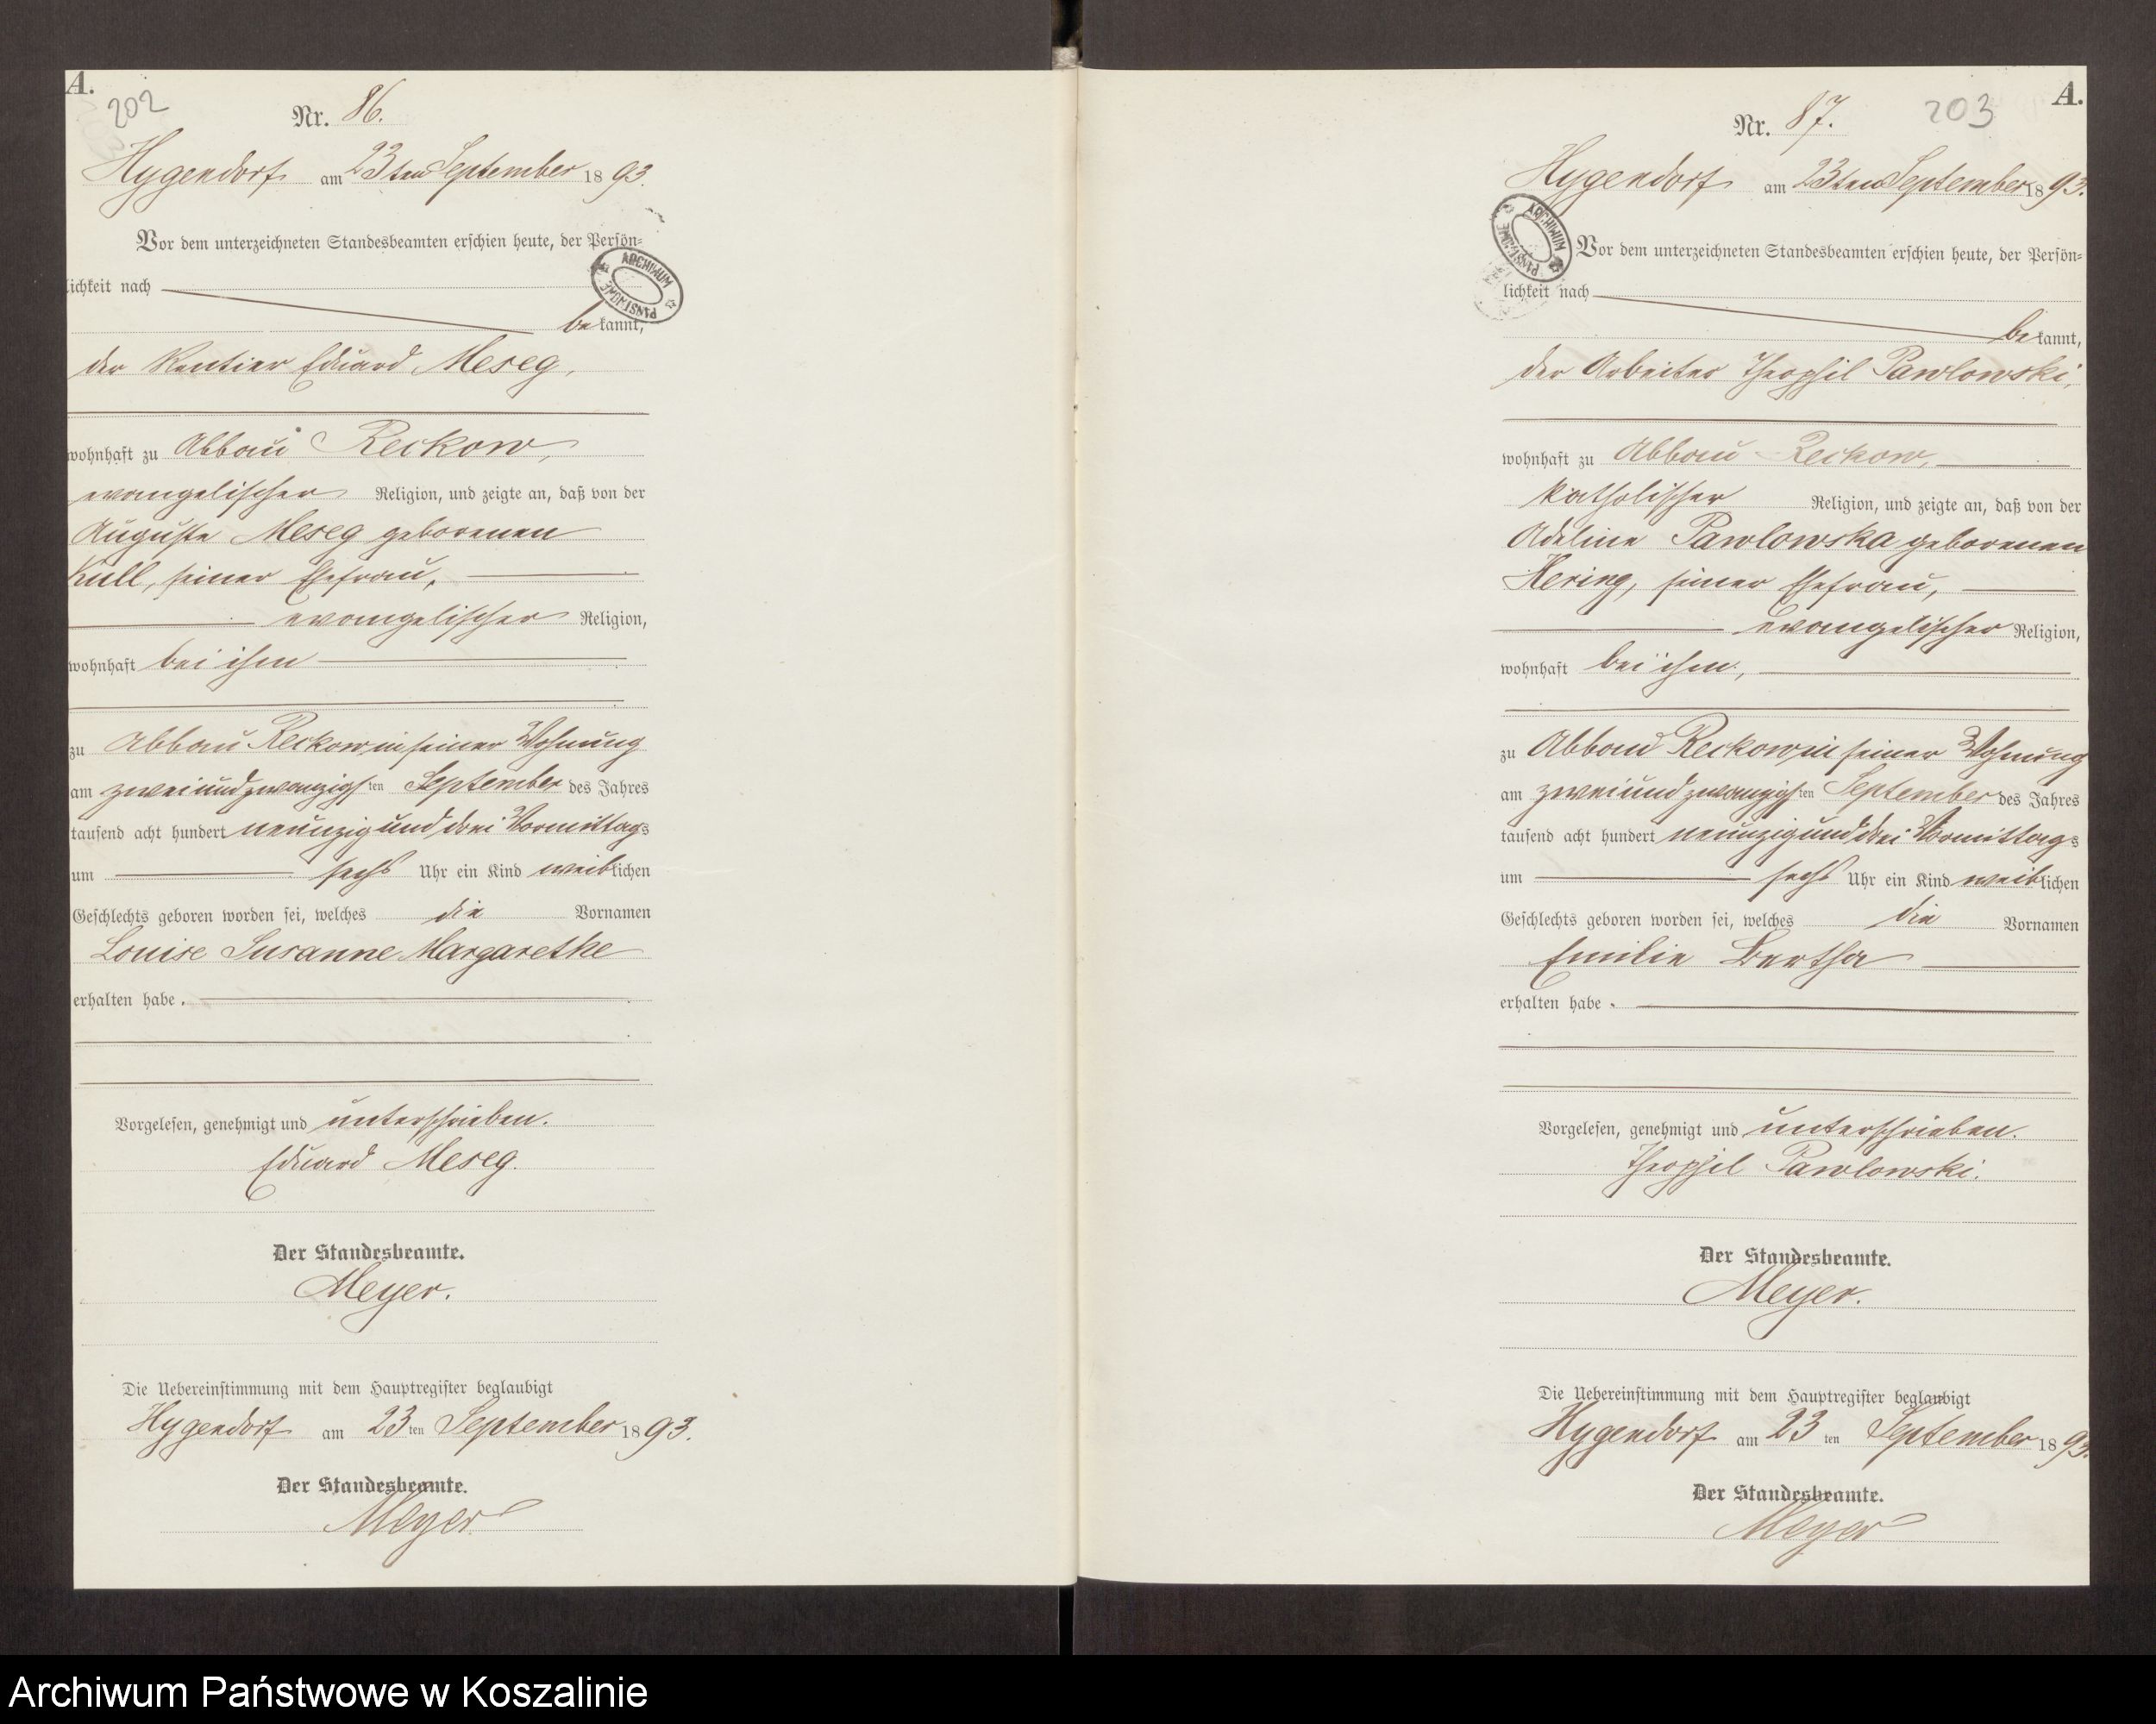 A.
202
Nr. 86.
Hygendorf am 23ten September 1893.
Vor dem unterzeichneten Standesbeamten erschien heute, der Persön-
lichkeit nach
bekannt,
der Rentier Eduard Meseg,
wohnhaft zu Abbau Reckow,
evangelischer Religion, und zeigte an, daß von der
Auguste Meseg geborenen
Kull, seiner Ehefrau,
evangelischer Religion,
wohnhaft bei ihm
zu Abbau Reckow in seiner Wohnung
am zweiundzwanzigsten September des Jahres
tausend acht hundert neunzig und drei Vormittags
um sechs Uhr ein Kind weiblichen
Geschlechts geboren worden sei, welches die Vornamen
Louise Susanne Margarethe
erhalten habe.
Vorgelesen, genehmigt und unterschrieben.
Eduard Meseg.
Der Standesbeamte.
Meyer.
Die Uebereinstimmung mit dem Hauptregister beglaubigt
Hygendorf am 23ten September 1893.
Der Standesbeamte.
Meyer
ARCHIWUM PAŃSTWOWE
A.
203
Nr. 87.
Hygendorf am 23ten September 1893.
ARCHIWUM PAŃSTWOWE
Vor dem unterzeichneten Standesbeamten erschien heute, der Persön-
lichkeit nach
bekannt,
der Arbeiter Theophil Pawlowski,
wohnhaft zu Abbau Reckow,
katholischer Religion, und zeigte an, daß von der
Adeline Pawlowska geborenen
Hering, seiner Ehefrau,
evangelischer Religion,
wohnhaft bei ihm,
zu Abbau Reckow in seiner Wohnung
am zweiundzwanzigsten September des Jahres
tausend acht hundert neunzig und drei Vormittags
um sechs Uhr ein Kind weiblichen
Geschlechts geboren worden sei, welches die Vornamen
Emilie Bertha
erhalten habe.
Vorgelesen, genehmigt und unterschrieben.
Theophil Pawlowski.
Der Standesbeamte.
Meyer.
Die Uebereinstimmung mit dem Hauptregister beglaubigt
Hygendorf am 23ten September 1893.
Der Standesbeamte.
Meyer
Archiwum Państwowe w Koszalinie